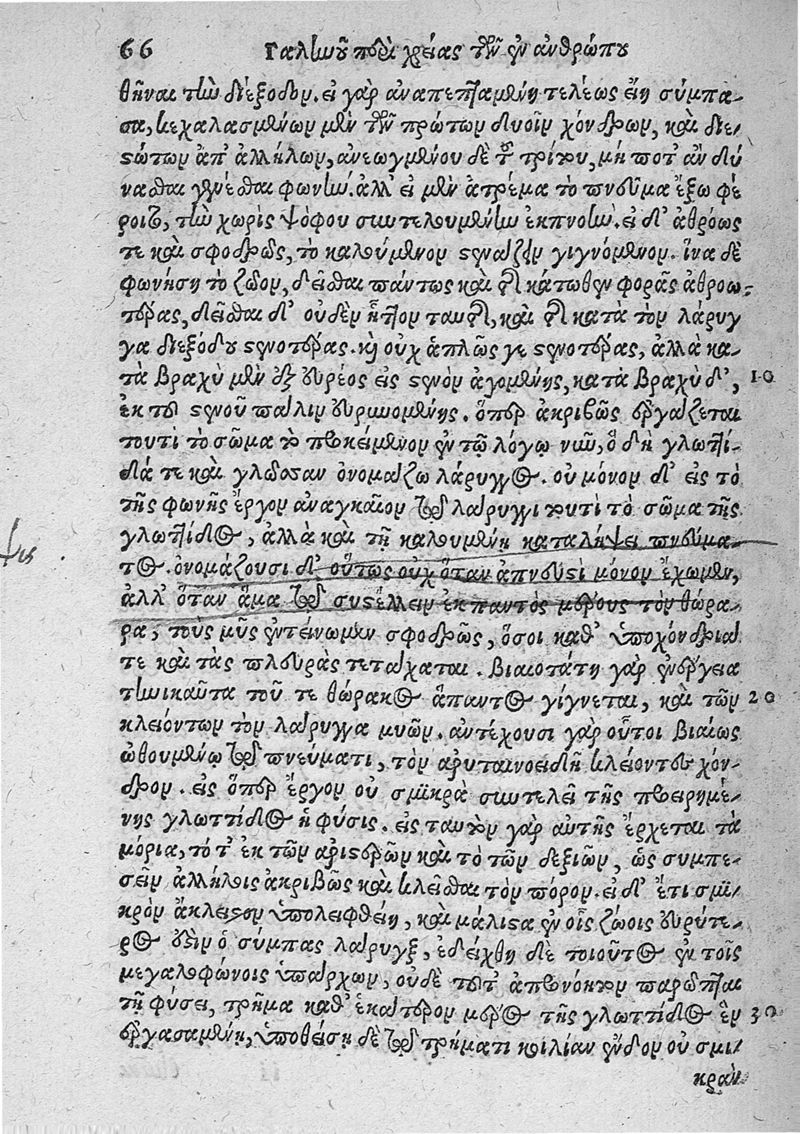 66 Γαλίωοῦ περὶ χρείας τῶν ἐν ἀνθρώπου
θῆναι τὴν διέξοδον. εἰ γὰρ ἀναπεπταμένη τελέως εἴη σύμπα-
σα, κεχαλασμένων μὲν τῶν πρώτων δυοῖν χόνδρων, καὶ διε-
στώτων ἀπ' ἀλλήλων, ἀνεωγμένου δὲ τοῦ τρίτου, μή ποτ' ἂν δύ
νασθαι γενέσθαι φωνήν. ἀλλ' εἰ μὲν ἀτρέμα τὸ πνεῦμα ἔξω φέ
ροιτο, τὴν χωρὶς ψόφου συντελουμένην ἐκπνοήν. εἰ δ' ἀθρόως
τε καὶ σφοδρῶς, τὸ καλούμενον στενάζειν γιγνόμενον. ἵνα δὲ
φωνήσῃ τὸ ζῶον, δεῖσθαι πάντως καὶ τῆς κάτωθεν φορᾶς ἀθροω-
τέρας, δεῖσθαι δ' οὐδὲν ἧττον ταύτης, καὶ τῆς κατὰ τὸν λάρυγ
γα διεξόδου στενοτέρας. καὶ οὐχ ἁπλῶς γε στενοτέρας, ἀλλὰ κα-
τὰ βραχὺ μὲν ἐξ εὐρέος εἰς στενὸν ἀγομένης, κατὰ βραχὺ δ', 10
ἐκ τοῦ στενοῦ πάλιν εὐρυνομένης. ὅπερ ἀκριβῶς ἐργάζεται
τουτὶ τὸ σῶμα τὸ προκείμενον ἐν τῷ λόγῳ νῦν, ὃ δὴ γλωττί-
δά τε καὶ γλῶσσαν ὀνομάζω λάρυγγος. οὐ μόνον δ' εἰς τὸ
τῆς φωνῆς ἔργον ἀναγκαῖον τῷ λάρυγγι τουτὶ τὸ σῶμα τῆς
γλωττίδος, ἀλλὰ καὶ τῇ καλουμένῃ καταλήψει πνεύμα-
ψις
τος. ὀνομάζουσι δ' οὕτως οὐχ ὅταν ἀπνευστὶ μόνον ἔχωμεν,
ἀλλ' ὅταν ἅμα τῷ συστέλλειν ἐκ παντὸς μέρους τὸν θώρα-
ρα, τοὺς μῦς ἐντείνωμεν σφοδρῶς, ὅσοι καθ' ὑποχόνδρια
τε καὶ τὰς πλευρὰς τετάχαται. βιαιοτάτη γὰρ ἐνέργεια
τηνικαῦτα τοῦ τε θώρακος ἅπαντος γίγνεται, καὶ τῶν 20
κλειόντων τὸν λάρυγγα μυῶν. ἀντέχουσι γὰρ οὗτοι βιαίως
ὠθουμένῳ τῷ πνεύματι, τὸν ἀρυταινοειδῆ κλείοντες χόν-
δρον. εἰς ὅπερ ἔργον οὐ σμικρὰ συντελεῖ τῆς προειρημέ-
νης γλωττίδος ἡ φύσις. εἰς ταυτὸν γὰρ αὐτῆς ἔρχεται τὰ
μόρια, τό τ' ἐκ τῶν ἀριστερῶν καὶ τὸ τῶν δεξιῶν, ὡς συμπε-
σεῖν ἀλλήλοις ἀκριβῶς καὶ κλεῖσθαι τὸν πόρον. εἰ δ' ἔτι σμι-
κρὸν ἄκλειστον ὑπολειφθείη, καὶ μάλιστα ἐν οἷς ζώοις εὐρύτε-
ρος ἐστιν ὁ σύμπας λάρυγξ, ἐδείχθη δὲ τοιοῦτος ἐν τοῖς
μεγαλοφώνοις ὑπάρχων, οὐδὲ τοῦτ' ἀπρονόητον παρῶπται
τῇ φύσει, τρῆμα καθ' ἑκάτερον μέρος τῆς γλωττίδος ἓν 30
ἐργασαμένῃ, ὑποθείσῃ δὲ τῷ τρήματι κοιλίαν ἔνδον οὐ σμι-
κρὰν